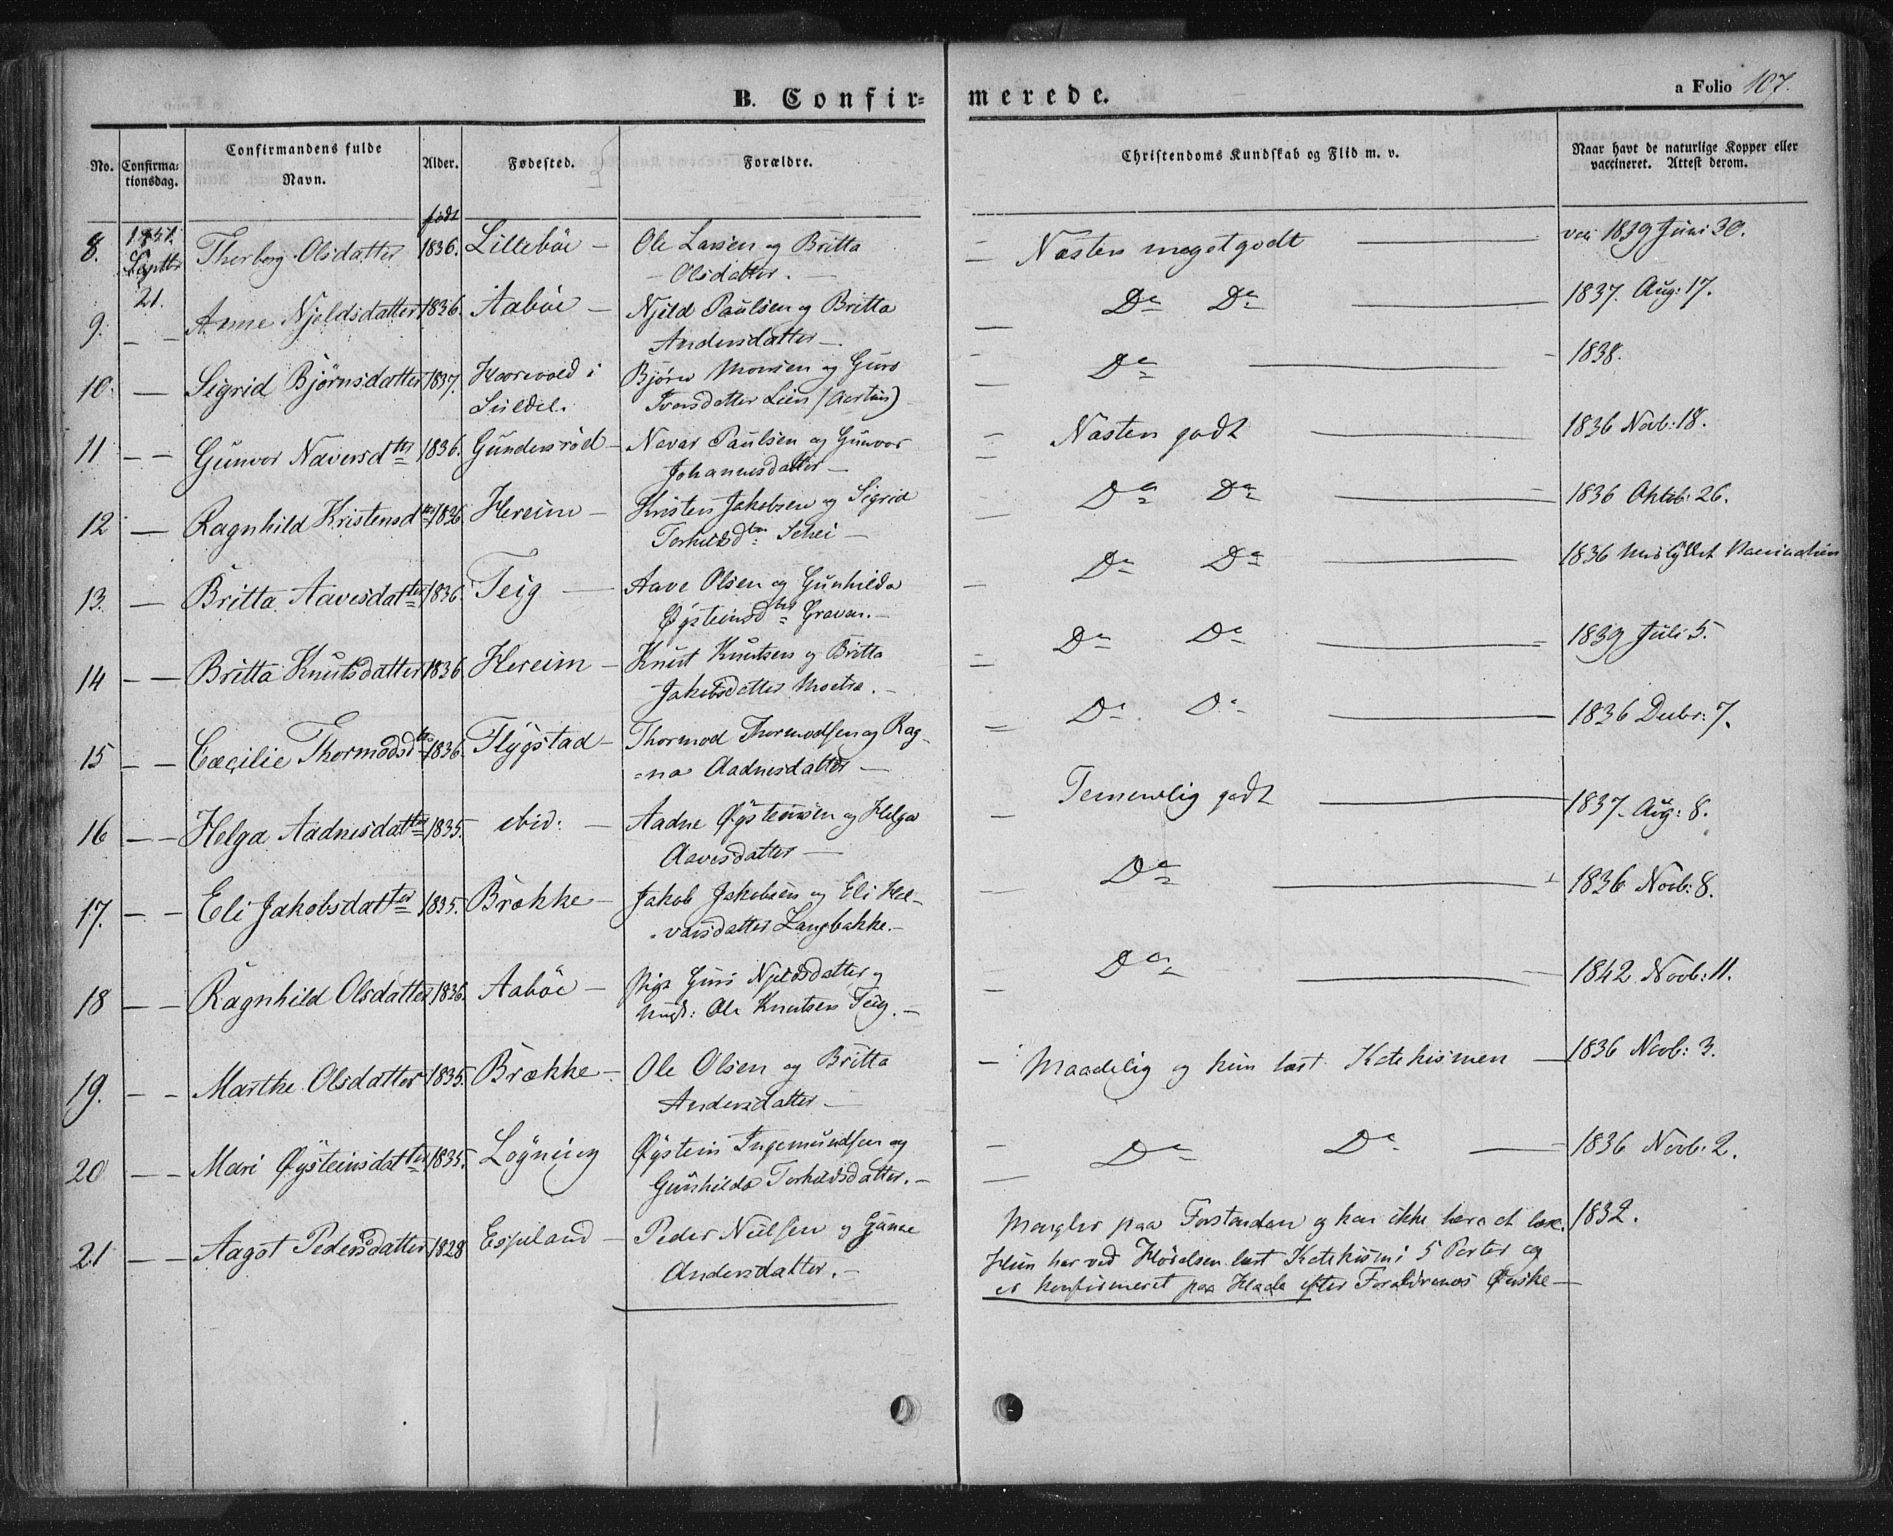 B. Confir= merede. a Folio 107.
No. Confirma-tionsdag. Confirmandens fulde Navn. Alder. Fødested. Forældre. Christendoms Kundskab og Flid m. v. Naar havt de naturlige Kopper eller vaccineret. Attest derom.
født
8. 1851 Septbr 21. Thorborg Olsdatter 1836. Lillebøe — Ole Larsen og Britta
Olsdatter. —
Næsten meget godt — 1839 Juni 30.
9. — — Anne Njeldsdatter 1836. Aabøe — Njeld Paulsen og Britta
Andersdatter —
Do Do — 1837. Aug: 17.
10. — Sigrid Bjørnsdatter 1837. i
Suldal.
Bjørn Monsen og Guro
Iversdatter Lien
Do — 1838.
11 — — Gunvor Naversdtr 1836. Gundersrød — Navar Paulsen og Gunvor
Johannesdatter —
Næsten godt — 1836 Novb: 18.
12 — Ragnhild Kristensdtr 1836 Hereim — Kristen Jakobsen og Sigrid
Torkildsdtr: Schei —
Do Do — 1836 Oktob: 26.
13. — Britta Aavesdatter 1836. Teig — Aave Olsen og Gunhilda
Øysteinsdtr Gravar. —
Do Do — 1836 Mislykket Vaccination
14 — — Britta Knutsdatter 1836 Hereim — Knut Knutsen og Britta
Jakobsdatter Moetra. —
Do Do — 1839 Juli 5.
15 — — Cæcilie Thormodsdtr 1836. Flygstad — Thormod Thormodsen og Rag-
-na Aadnesdatter —
Do Do — 1836 Decbr: 7.
16 — — Helga Aadnesdatter 1835. ibid: — Aadne Øysteinsen og Helga
Aavesdatter —
Temmelig godt — 1837. Aug: 8.
17. — — Eli Jakobsdatter 1835. Brække — Jakob Jakobsen og Eli Hel-
-varsdatter Langbakke. —
Do — 1836 Novb: 8.
18 — — Ragnhild Olsdatter 1836. Aabøe — Pige Guri Njeldsdatter og
Ungk: Ole Knutsen Teig. —
Do — 1842 Novb: 11.
19. — — Marthe Olsdatter 1835. Brække — Ole Olsen og Britta
Andersdatter —
Maadelig og kun læst Katekismen — 1836 Novb: 3.
20 — — Mari Øysteinsdatter 1835. Løgning Øystein Ingemundsen og
Gunhilda Torkildsdatter. —
Do Do — 1836 Novb: 2.
21 — — Aagot Pedersdatter 1828 Espeland — Peder Nielsen og Gunne
Andersdatter. —
Mangler paa Forstanden og kan ikke lære at læse. 1832.
Hun har ved Hørelsen lært Katekismi 5 Parter og
er konfirmeret paa Hjaale efter Forældrenes Ønske —